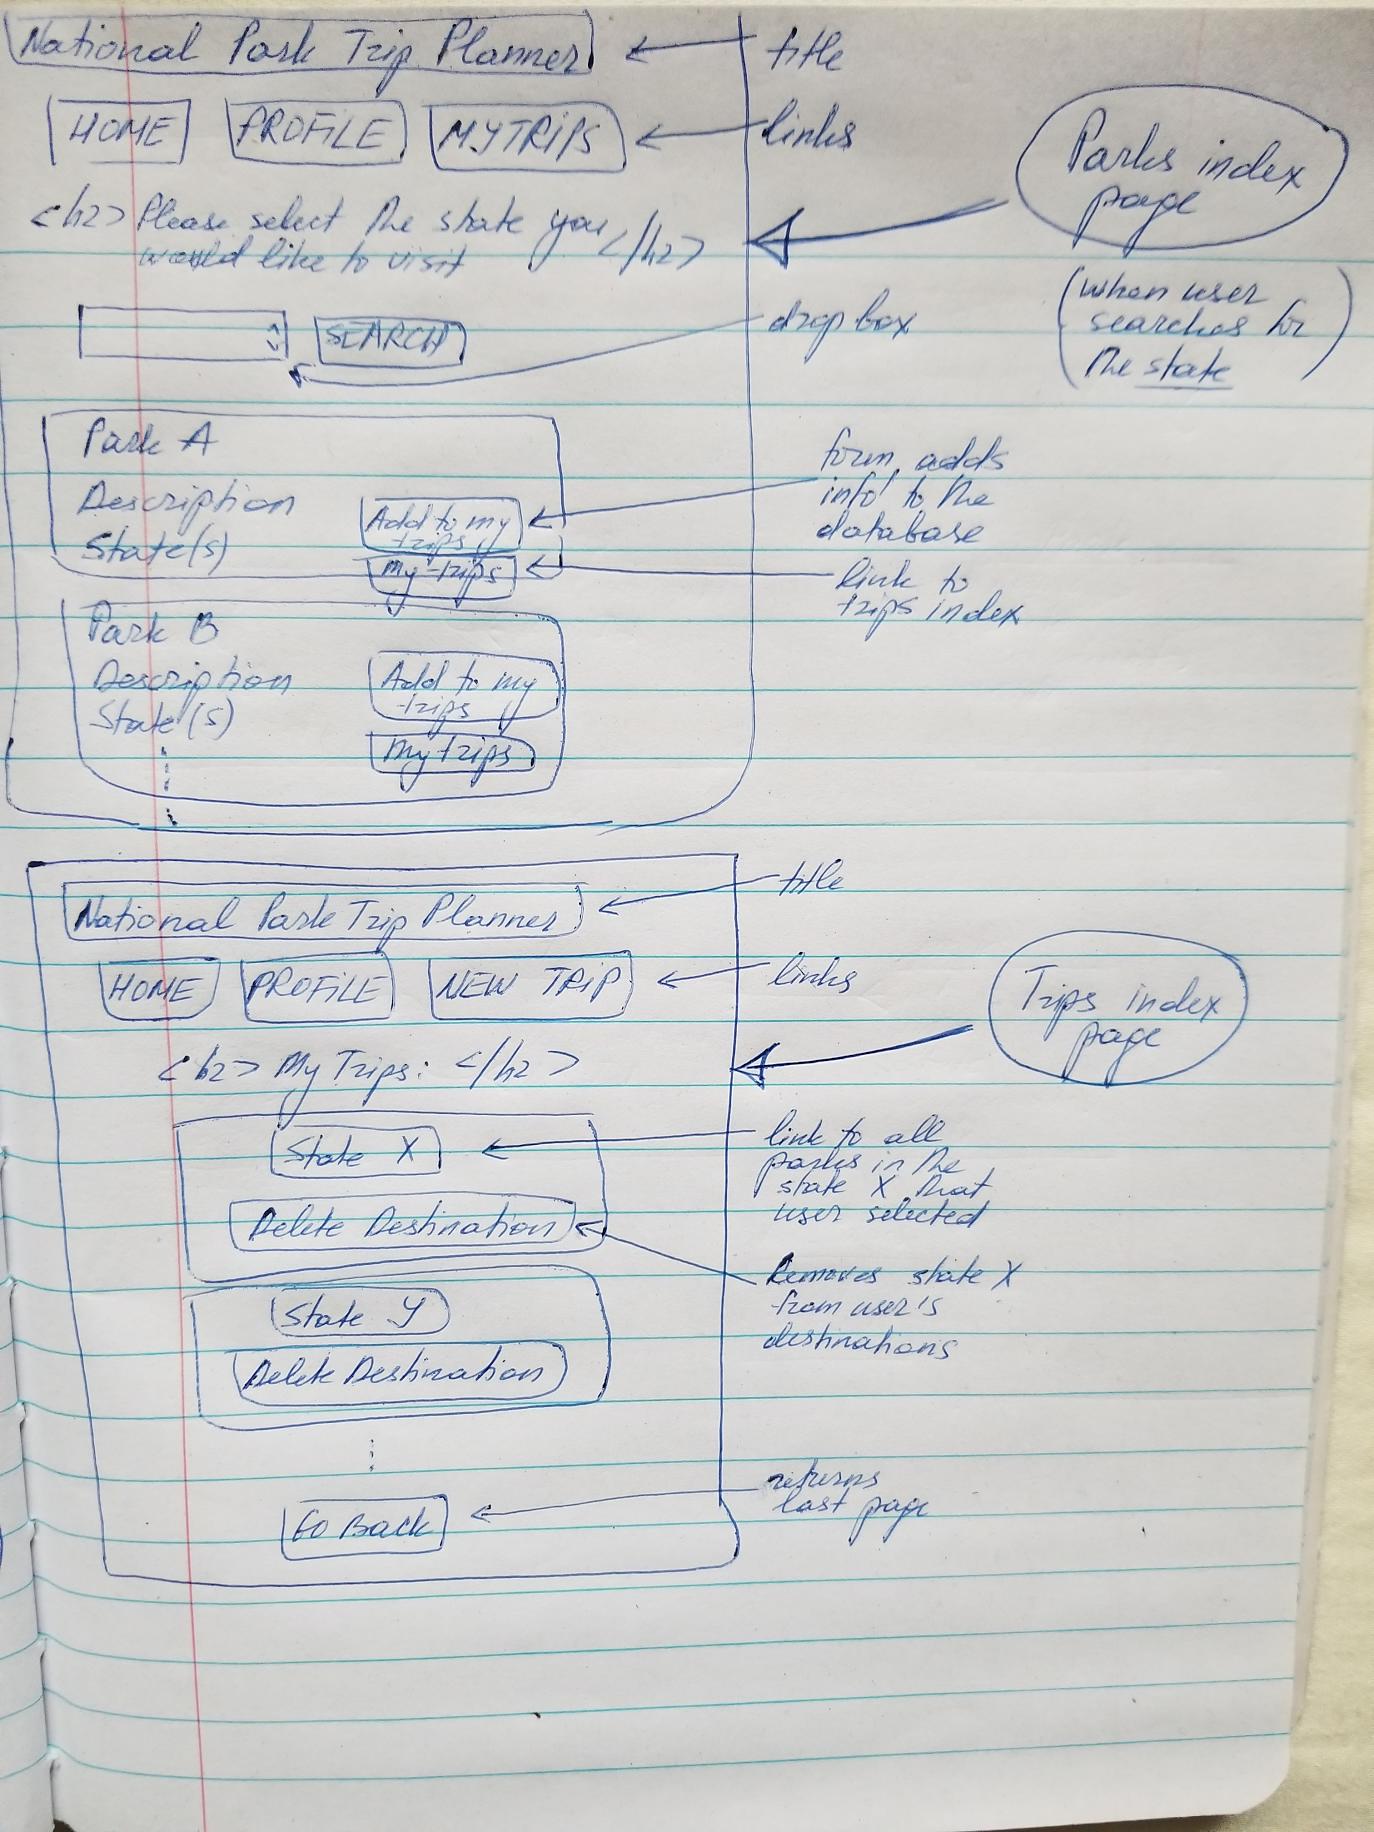 National Park Trip Planner
title
HOME PROFILE MY TRIPS
links
Parks index
page
<h2> Please select the state you </h2>
would like to visit
(when user
searches for
the state)
SEARCH
drop box
Park A
Description
State(s)
Add to my
trips
My trips
form adds
info to the
database
link to
trips index
Park B
Description
State(s)
Add to my
trips
My trips
National Park Trip Planner
title
HOME PROFILE NEW TRIP
links
Trips index
page
<h2> My Trips: </h2>
State X
link to all
parks in the
state X that
user selected
Delete Destination
Removes state X
from user's
destinations
State Y
Delete Destination
GO Back
returns
last page